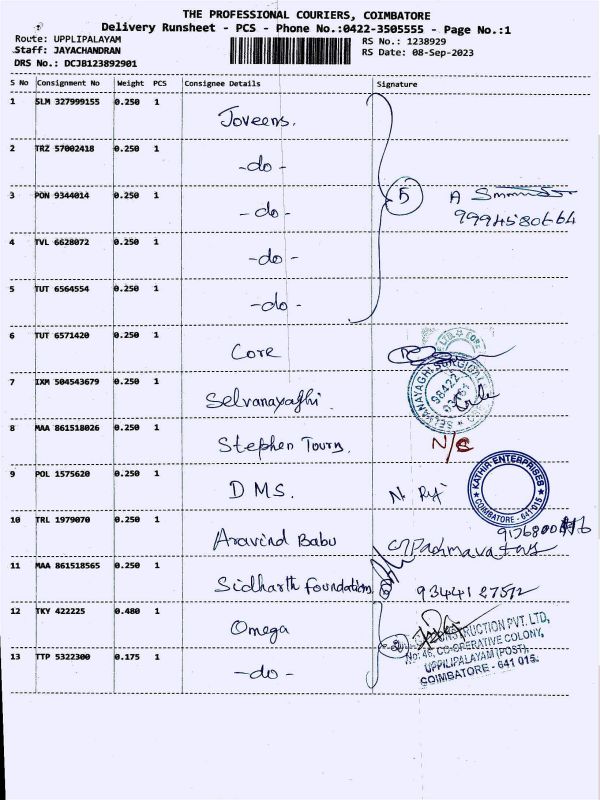 THE PROFESSIONAL COURIERS, COIMBATORE
Delivery Runsheet - PCS - Phone No.:0422-3505555 - Page No.:1
Route: UPPLIPALAYAM
RS No.: 1238929
Staff: JAYACHANDRAN
RS Date: 08-Sep-2023
DRS No.: DCJB123892901
S No Consignment No Weight PCS Consignee Details Signature
1 SLM 327999155 0.250 1 Joveens.
2 TRZ 57002418 0.250 1 -do-
3 PON 9344014 0.250 1 -do-
5
9994580664
4 TVL 6628072 0.250 1 -do-
5 TUT 6564554 0.250 1 -do-
6 TUT 6571420 0.250 1 Core
7 IXM 504543679 0.250 1 Selvanayaghi.
SELVANAYAGHI SURGICAL
98422
8 MAA 861518026 0.250 1 Stephen Tours. N/S
9 POL 1575620 0.250 1 DMS.
KATHIR ENTERPRISES
COIMBATORE - 641 015
10 TRL 1979070 0.250 1 Aravind Babu
11 MAA 861518565 0.250 1 Sidharth foundation. 9344127512
12 TKY 422225 0.480 1 Omega
2
CONSTRUCTION PVT. LTD,
No: 46, CO-OPERATIVE COLONY,
UPPILIPALAYAM (POST),
COIMBATORE - 641 015.
13 TTP 5322300 0.175 1 -do-